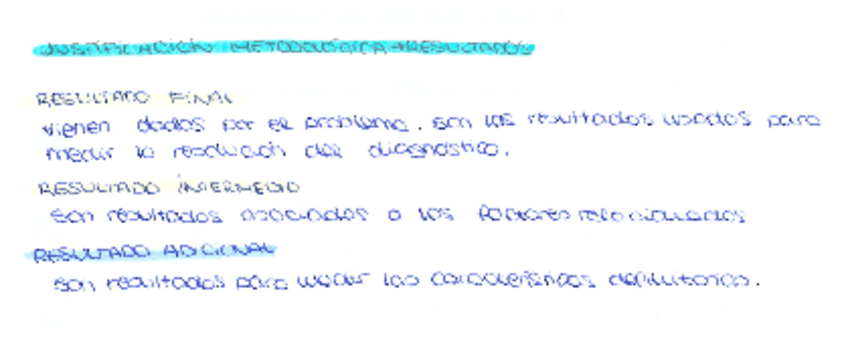 JUSTIFICACIÓN METODOLÓGICA + RESULTADOS
RESULTADO FINAL
vienen dados por el problema. son los resultados usados para
medir la resolución del diagnóstico.
RESULTADO INTERMEDIO
son resultados asociados a los factores relacionados
RESULTADO ADICIONAL
son resultados para medir las características definitorias.